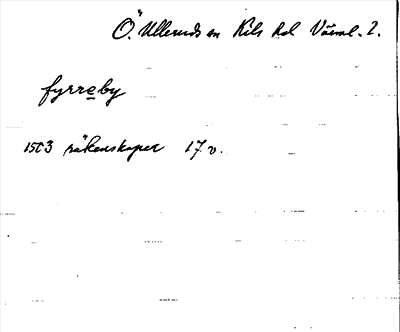 Ö. Ulleruds sn Kils hd Värml. l.
fyrreby
1503 räkenskaper 17 v.